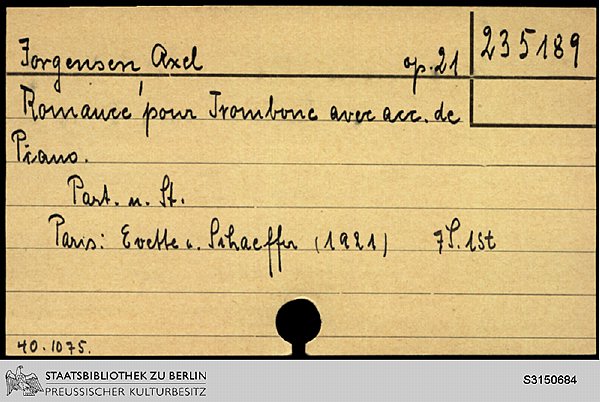 Jorgensen Axel op. 21 235189
Romance pour Trombone avec acc. de
Piano.
Part. u. St.
Paris: Evette u. Schaeffer (1921) 7 S. 1 St
40.1075.
STAATSBIBLIOTHEK ZU BERLIN
PREUSSISCHER KULTURBESITZ
S3150684